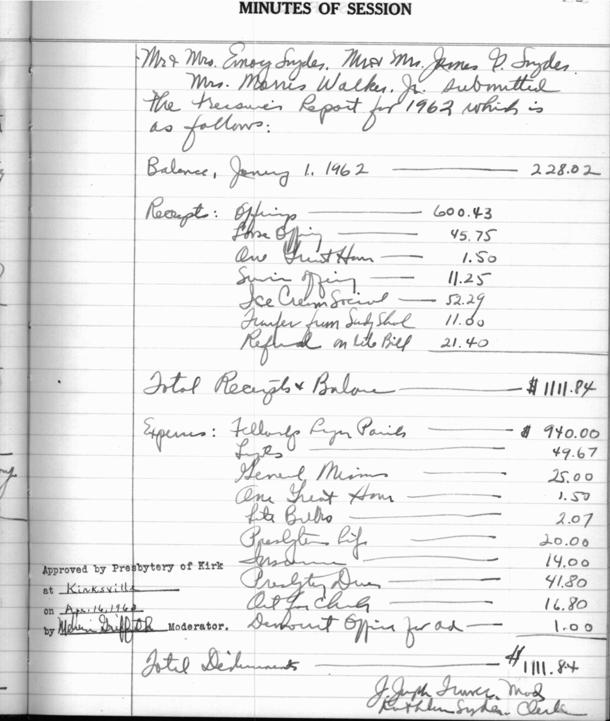 MINUTES OF SESSION
Mr & Mrs. Emory Snyder, Mr & Mrs. James D. Snyder,
Mrs. Morris Walker, Jr. submitted
the treasurer's Report for 1962 which is
as follows:
Balance, January 1, 1962 228.02
Receipts: Offerings 600.43
Loose Offering 45.75
One Great Hour 1.50
offering 11.25
Ice Cream Social 52.29
Transfer from Sudy Shol 11.00
Refund on Lite Bill 21.40
Total Receipts & Balance $1111.84
Expenses: $ 940.00
Lights 49.67
General Mission 25.00
One Great Hour 1.50
Lite Bulbs 2.07
Presbyterian Life 20.00
Insurance 14.00
Presbytery Dues 41.80
16.80
Offering for ad 1.00
Total Disbursements $1111.84
Approved by Presbytery of Kirk
at Kirksville
on Apr. 16, 196
by Melvin Griffith Moderator.
J. Mod
Kathleen Snyder - Clerk